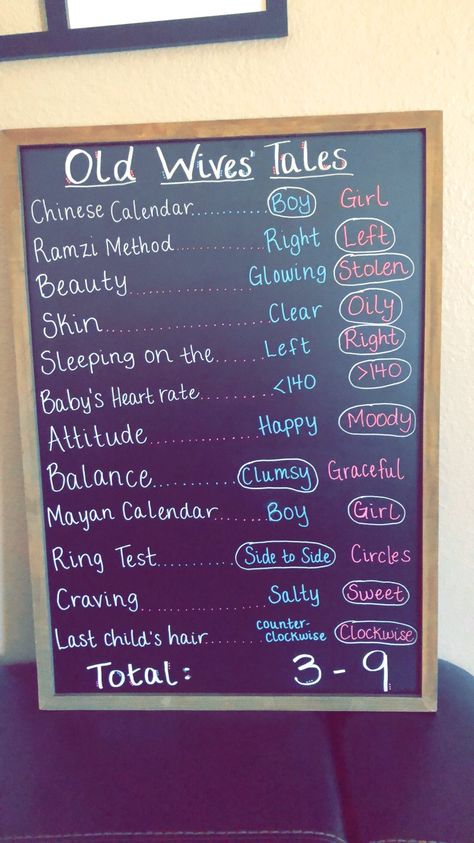 Old Wives' Tales
Chinese Calendar........... Boy Girl
Ramzi Method............ Right Left
Beauty............... Glowing Stolen
Skin.................... Clear Oily
Sleeping on the...... Left Right
Baby's Heart rate......... <140 >140
Attitude.............. Happy Moody
Balance........... Clumsy Graceful
Mayan Calendar...... Boy Girl
Ring Test........... Side to Side Circles
Craving............... Salty Sweet
Last child's hair....... counter-clockwise Clockwise
Total: 3 - 9